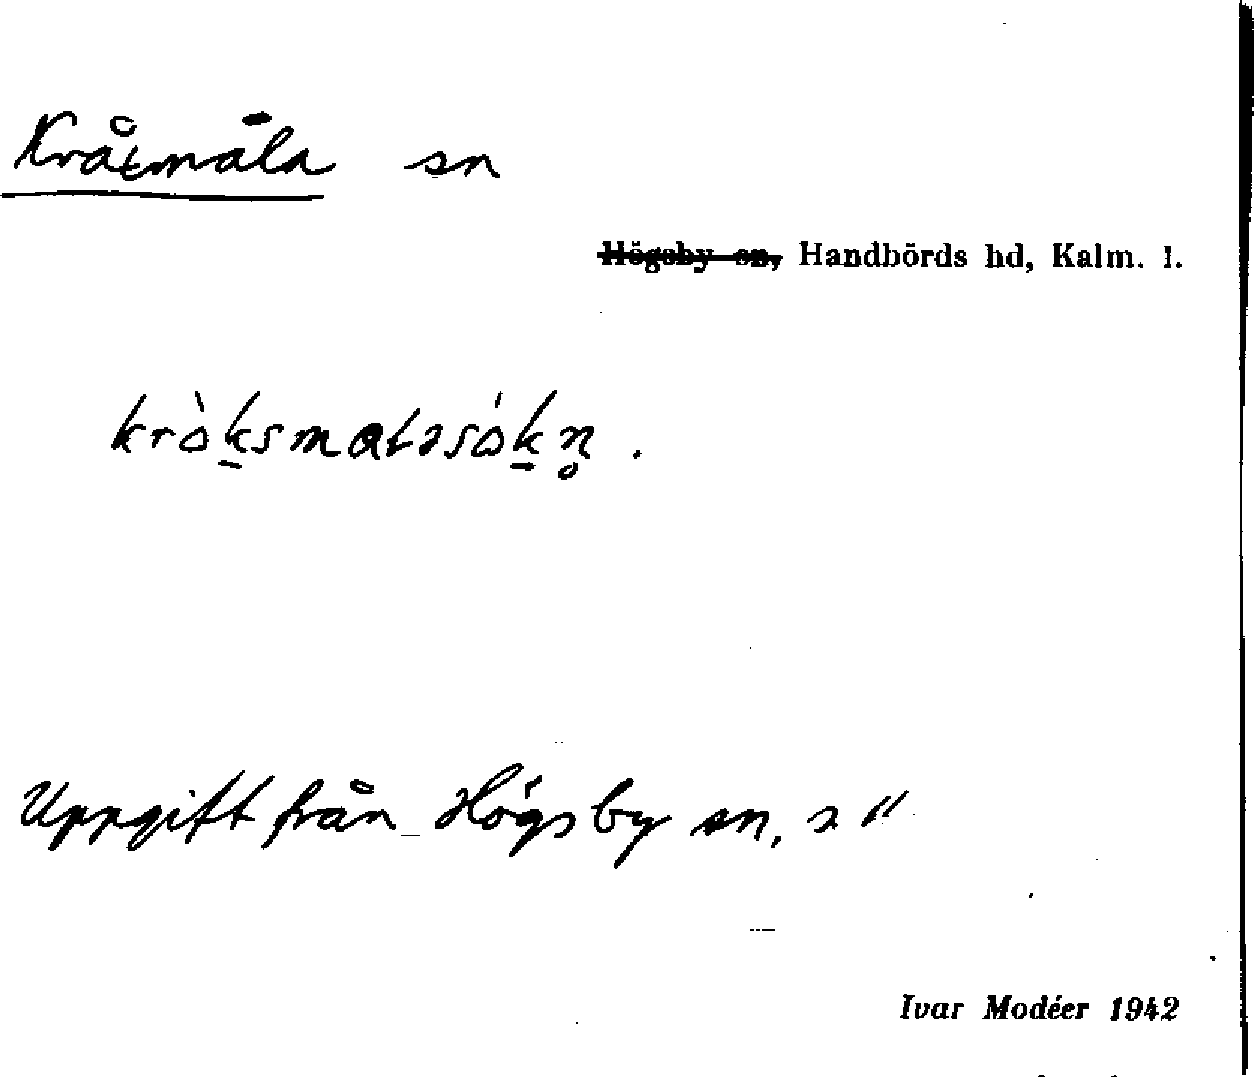 Kråxmåla sn
Högsby sn, Handbörds hd, Kalm. l.
Uppgift från Högsby sn, s
Ivar Modéer 1942